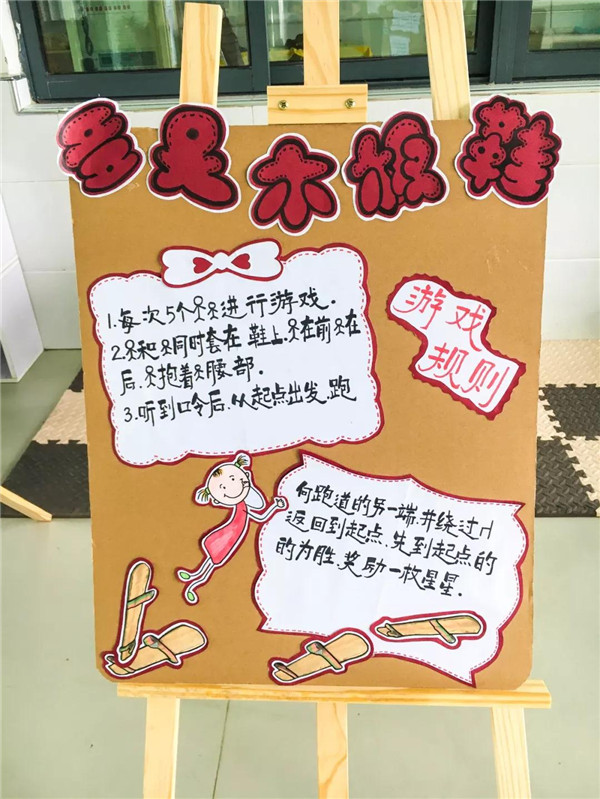 多足木板鞋
游戏
规则
1.每次5个进行游戏.
2.和同时套在鞋上.在前在
后.抱着腰部.
3.听到口令后.从起点出发.跑
向跑道的另一端.并绕过
返回到起点.先到起点的
的为胜.奖励一枚星星.